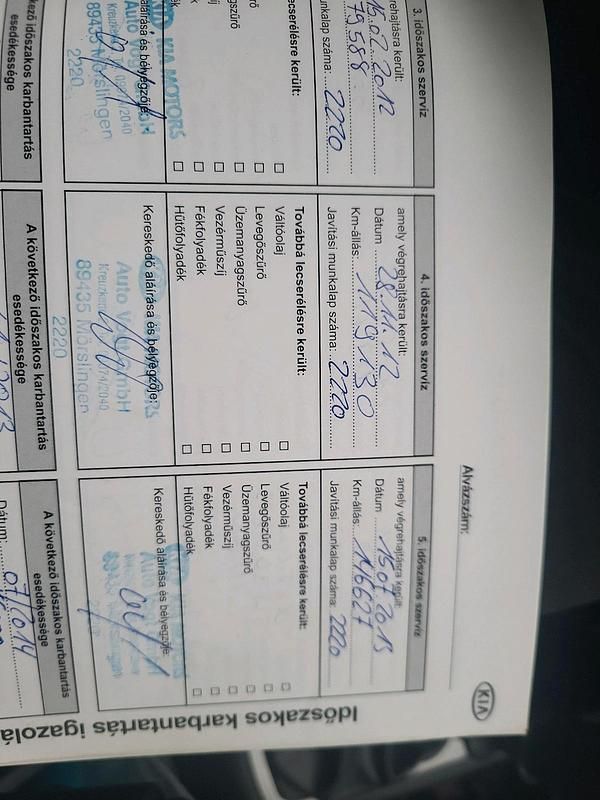 KIA
Időszakos karbantartás igazolá
Alvázszám:
3. időszakos szerviz
15.02.2012
79588
nkalap száma: 2220
cserélésre került:
KIA MOTORS
aláírása és bélyegzője:
89435 Mörslingen
2220
kező időszakos karbantartás
esedékessége
4. időszakos szerviz
amely végrehajtásra került:
Dátum 28.11.12
Km-állás: 119130
Javítási munkalap száma: 2220
Továbbá lecserélésre került:
Váltóolaj
Levegőszűrő
Üzemanyagszűrő
Vezérműszíj
Fékfolyadék
Hűtőfolyadék
Kereskedő aláírása és bélyegzője:
89435 Mörslingen
2220
A következő időszakos karbantartás
esedékessége
5. időszakos szerviz
amely végrehajtásra került:
Dátum 15.07.2013
Km-állás: 146627
Javítási munkalap száma: 2220
Továbbá lecserélésre került:
Váltóolaj
Levegőszűrő
Üzemanyagszűrő
Vezérműszíj
Fékfolyadék
Hűtőfolyadék
Kereskedő aláírása és bélyegzője:
A következő időszakos karbantartás
esedékessége
Dátum: 07/2014